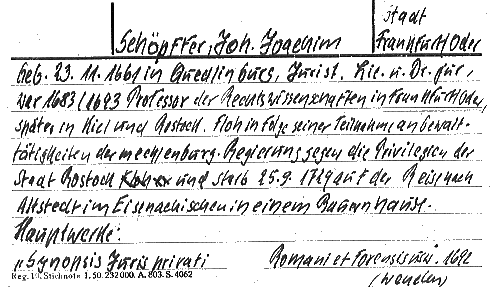 Stadt
Schöpffer, Joh. Joachim Frankfurt Oder
Geb. 23. 11. 1661 in Quedlinburg, Jurist. Lic. u. Dr. jur,
war 1683/1693 Professor der Rechtswissenschaften in Frankfurt Oder,
später in Kiel und Rostock. Floh infolge seiner Teilnahme an Gewalt-
tätigkeiten der mecklenburg. Regierung gegen die Privilegien der
Stadt Rostock und starb 25.9. 1729 auf der Reise nach
Allstedt im Eisenachischen in einem Bauernhause.
Hauptwerke:
"Synopsis Juris privati Romani et Forensis 1692
Reg. 10. Stichnote 1. 50. 232 000. A. 803. S. 4062